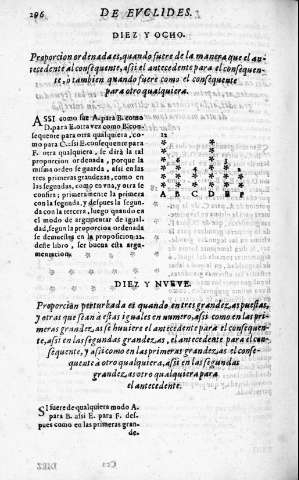 296
DE EVCLIDES.
DIEZ Y OCHO.
Proporcion ordenada es, quando fuere de la manera que el an-
tecedente al consequente, assi el antecedente para el consequen-
te, o tambien quando fuere como el consequente
para otro qualquiera.
ASSI como fue A. para B. como
D. para E. otra vez como B. con-
sequente para otra qualquiera, co-
mo para C. assi E. consequente para
F. otra qualquiera, se dirà la tal
proporcion ordenada, porque la
misma orden se guarda, assi en las
tres primeras grandezas, como en
las segundas, como en vna, y otra se
confiere; primeramente la primera
con la segunda, y despues la segun-
da con la tercera, luego quando en
el modo de argumentar de igual-
dad, segun la proporcion ordenada
se demuestra en la proposicion 22.
deste libro, ser buena esta argu-
mentacion.
12
A B C D
DIEZ Y NUEVE.
Proporcion perturbada es quando en tres grandezas puestas,
y otras que sean à estas iguales en numero, assi como en las pri-
meras grandezas se huuiere el antecedente para el consequen-
te, assi en las segundas grandezas, el antecedente para el con-
sequente, y assi como en las primeras grandezas el conse-
quente a otro qualquiera, assi en las segundas
grandezas otro qualquiera para
el antecedente.
SI fuere de qualquiera modo A.
para B. assi E. para F. des-
pues como en las primeras gran-
de-